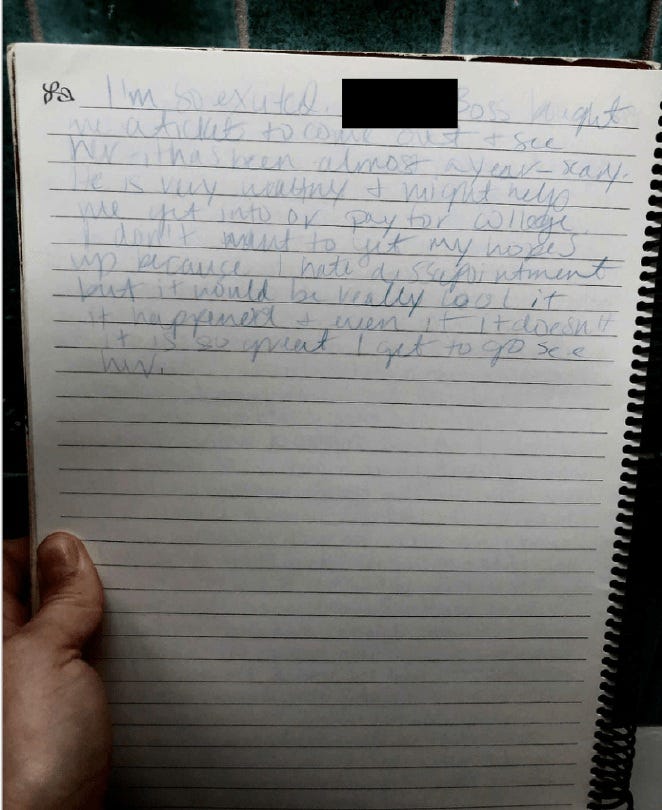 I'm so exited. Boss bought
me a tickets to come out + see
her - it has been almost a year - scary.
He is very wealthy + might help
me get into or pay for college.
I don't want to get my hopes
up because I hate dissapointment
but it would be really cool if
it happened + even if it doesn't
it is so great I get to go see
her.